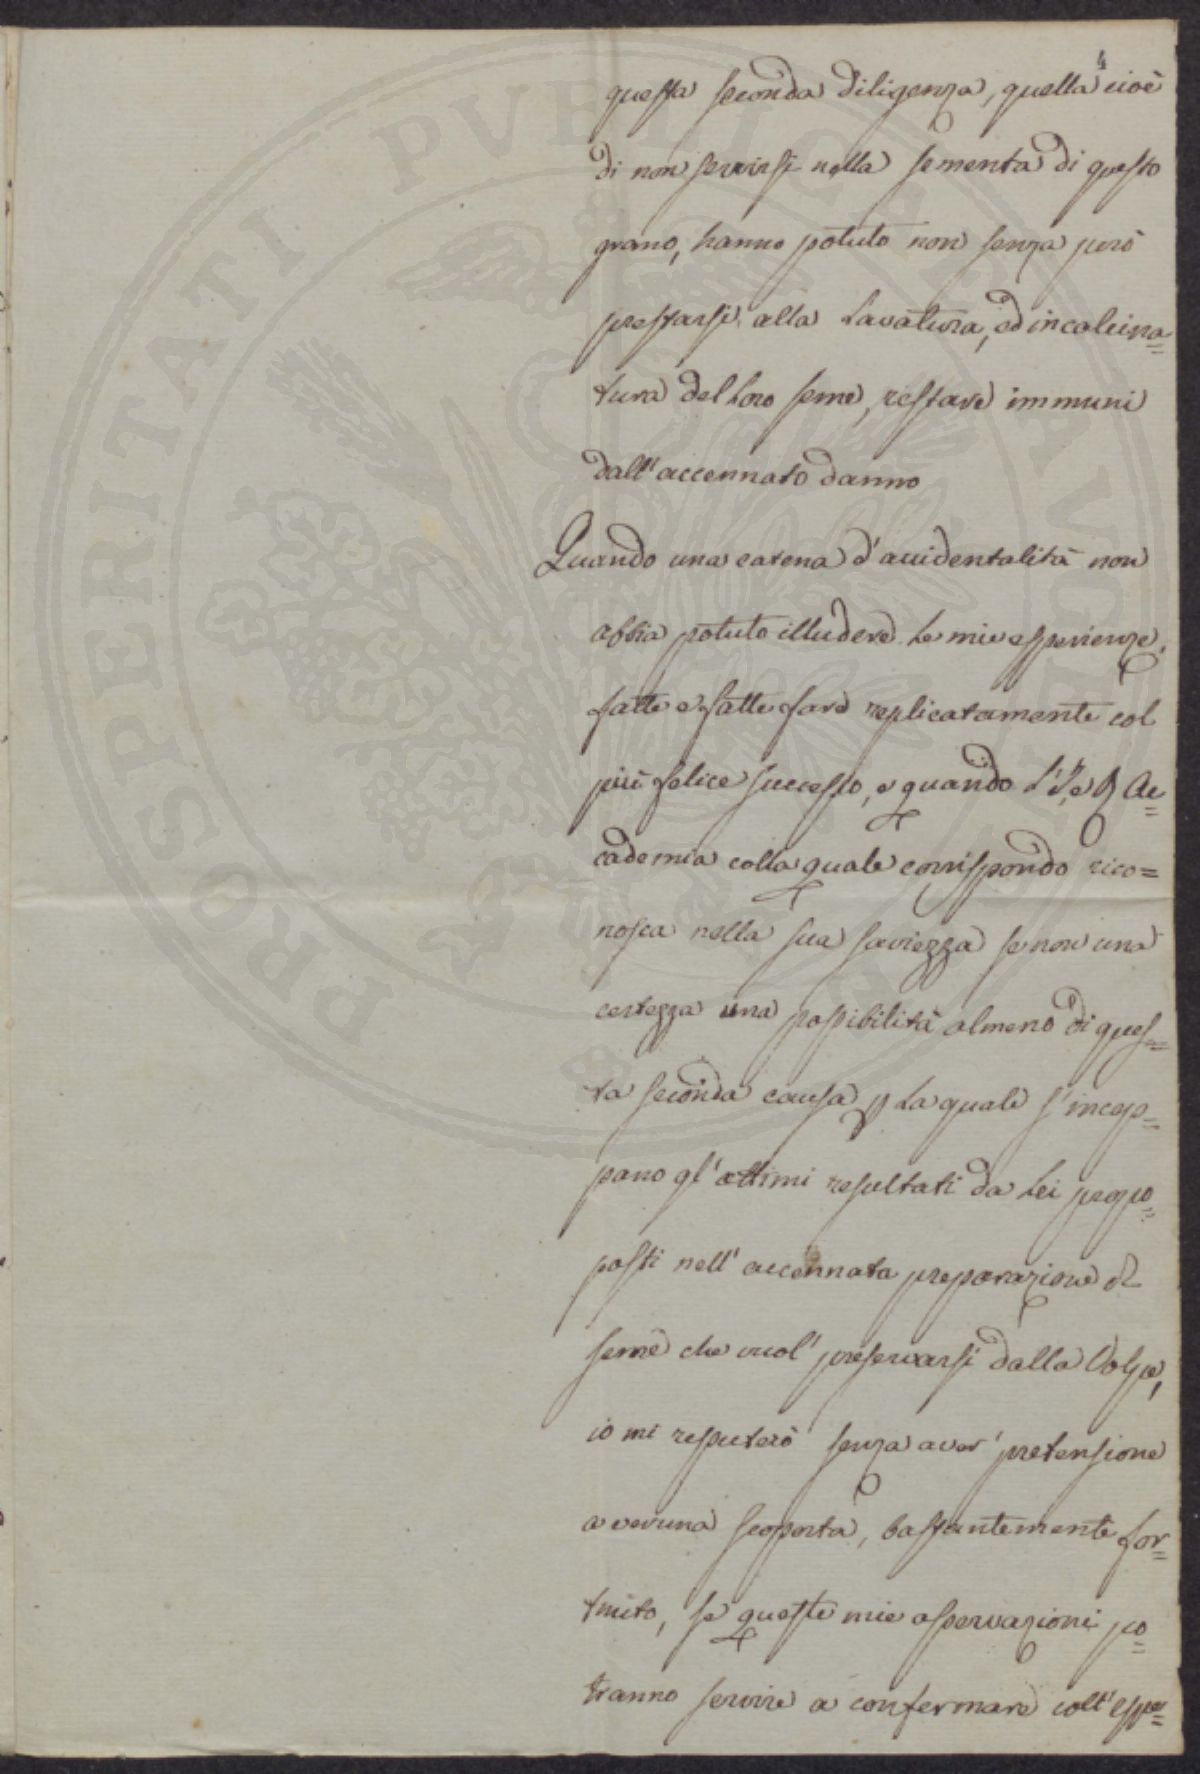 4
questa seconda diligenza, quella cioè
di non servirsi nella sementa di questo
grano, hanno potuto non senza però
prestarsi alla Lavatura, ed incalcina=
tura del Loro seme, restare immuni
dall'accennato danno
Quando una catena d'accidentalità non
abbia potuto illudere Le mie esperienze,
fatte e fatte fare replicatamente col
più felice successo, e quando L'I, e R Ac=
cademia colla quale corrispondo rico=
nosca nella sua saviezza se non una
certezza una possibilità almeno di ques=
ta seconda causa p La quale s'incep=
pano gl'ottimi resultati da Lei propo=
posti nell'accennata preparazione del
seme che vuol' preservarsi dalla Volpe,
io mi reputerò senza aver' pretensione
a veruna scoperta, bastantemente for=
tunato, se queste mie osservazioni po=
tranno servire a confermare coll'espe=
PROSPERITATI PVBLICAE AVGENDAE